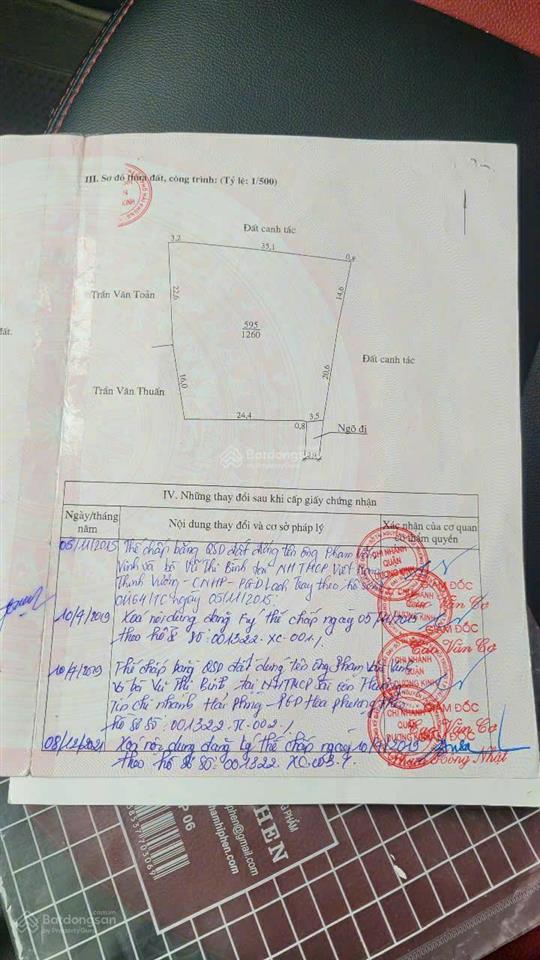 III. Sơ đồ thửa đất, công trình: (Tỷ lệ: 1/500)
Đất canh tác
3,2
35,1
0,8
Trần Văn Toản
22,6
14,6
595
1260
đất.
Đất canh tác
Trần Văn Thuấn
16,0
20,6
24,4
3,5
0,8
Ngõ đi
Batdongsan
by PropertyGuru
IV. Những thay đổi sau khi cấp giấy chứng nhận
Ngày/tháng năm
Nội dung thay đổi và cơ sở pháp lý
Xác nhận của cơ quan có thẩm quyền
05/11/2015 Thế chấp bằng QSD đất đứng tên ông Phạm Văn
Vinh và bà Vũ Thị Bình tại NHTMCP Việt Nam
Thịnh Vượng - CNHP - PGD Lạch Tray theo hồ sơ
ngày 05/11/2015.
10/9/2019 Xóa nội dung đăng ký thế chấp ngày 05/11/2015
theo hồ sơ số: 001322.XC.001.
10/9/2019 Thế chấp bằng QSD đất đứng tên ông Phạm Văn Vinh
và bà Vũ Thị Bình tại NHTMCP Sài Gòn Thương
Tín chi nhánh Hải Phòng PGD Hoa Phượng theo
hồ sơ số: 001322.TC.002.
08/12/2021 Xóa nội dung đăng ký thế chấp ngày 10/9/2019
theo hồ sơ số: 001322.XC.003.
CHI NHÁNH
QUẬN
DƯƠNG KINH
GIÁM ĐỐC
Cao Văn Cơ
CHI NHÁNH
DƯƠNG KINH
GIÁM ĐỐC
Cao Văn Cơ
CHI NHÁNH
QUẬN
DƯƠNG KINH
GIÁM ĐỐC
Cao Văn Cơ
CHI NHÁNH
QUẬN
DƯƠNG KINH
GIÁM ĐỐC
Phạm Hồng Nhật
P 06
3853770306
namhiphen@gmail.com
PHẨM
PHEN
Batdongsan.com.vn
by PropertyGuru